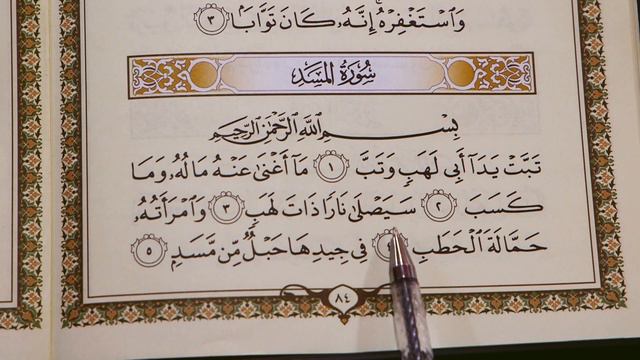 وَٱسۡتَغۡفِرۡهُۚ إِنَّهُۥ كَانَ تَوَّابَۢا ٣
سُورَةُ المَسَدِ
بِسۡمِ ٱللَّهِ ٱلرَّحۡمَٰنِ ٱلرَّحِيمِ
تَبَّتۡ يَدَآ أَبِي لَهَبٖ وَتَبَّ ١ مَآ أَغۡنَىٰ عَنۡهُ مَالُهُۥ وَمَا
كَسَبَ ٢ سَيَصۡلَىٰ نَارٗا ذَاتَ لَهَبٖ ٣ وَٱمۡرَأَتُهُۥ
حَمَّالَةَ ٱلۡحَطَبِ ٤ فِي جِيدِهَا حَبۡلٞ مِّن مَّسَدِۭ ٥
٨٤